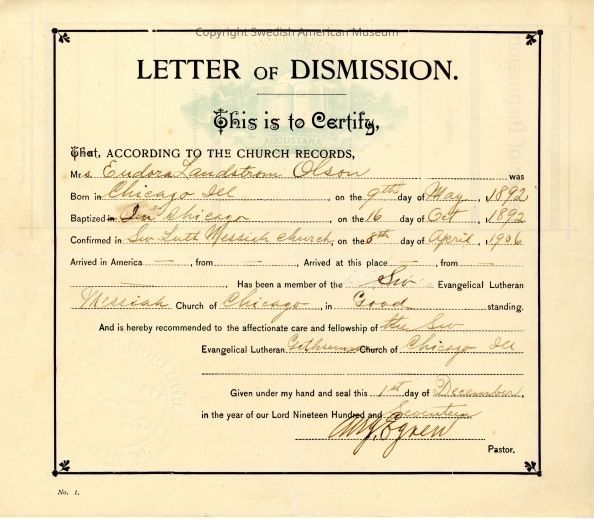 Copyright Swedish American Museum
LETTER OF DISMISSION.
AUGUSTANA
This is to Certify,
That, ACCORDING TO THE CHURCH RECORDS,
Mrs. Eudora Landstrom Olson was
Born in Chicago Ill, on the 9th day of May, 1892
Baptized in Chicago, on the 16 day of Oct, 1892
Confirmed in Sw Luth Messiah Church, on the 8th day of April, 1906
Arrived in America —, from —, Arrived at this place —, from —
— Has been a member of the Sw Evangelical Lutheran
Messiah Church of Chicago, in Good standing.
And is hereby recommended to the affectionate care and fellowship of the Sw
Evangelical Lutheran Church of Chicago Ill
Given under my hand and seal this 1st day of December,
in the year of our Lord Nineteen Hundred and Seventeen
Pastor.
No. 1.